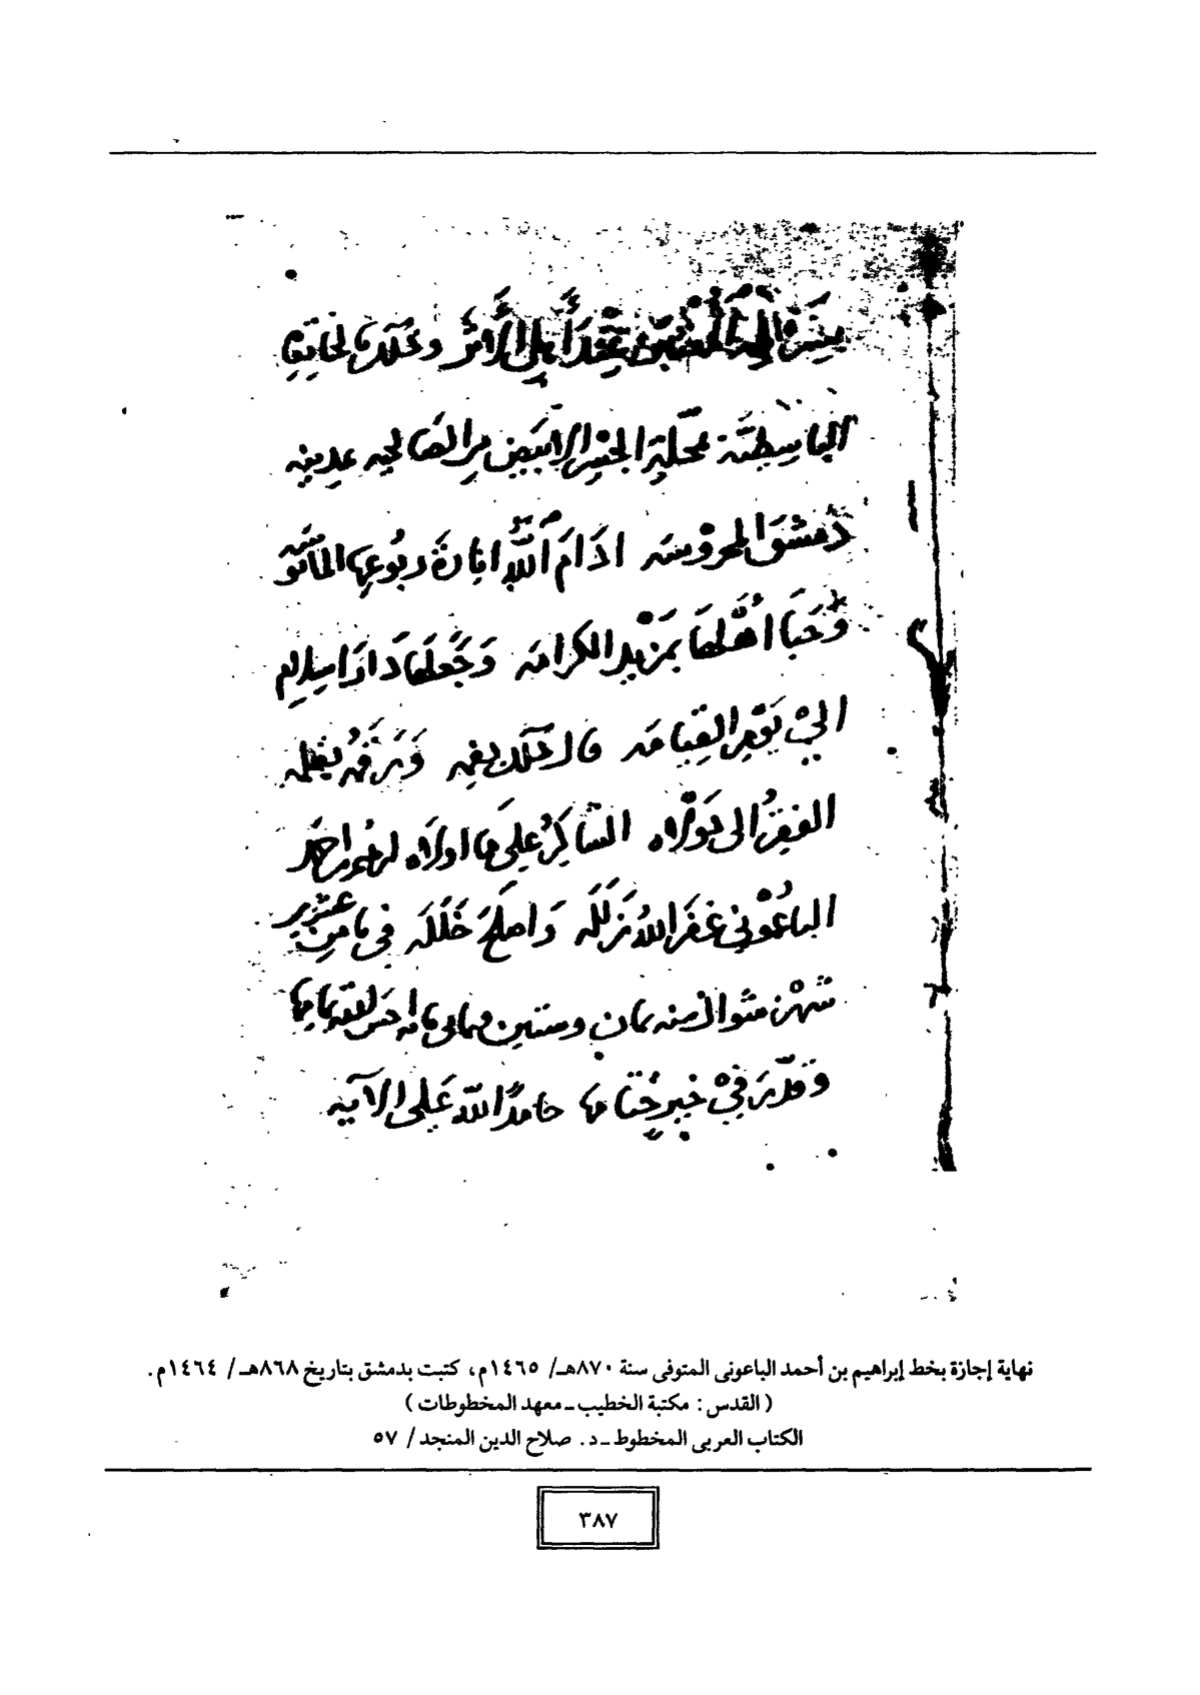 الباسطية بمحلة الجسر الابيض من الصالحيه بمدينه
دمشق المحروسه ادام الله انارة ربوعها المأنوسه
وحبا اهلها بمزيد الكرامه وجعلها دار اسلام
الى يوم القيامه قال ذلك بفمه ورقمه بقلمه
الفقير الى مولاه الشاكر على ما اولاه ابرهيم بن احمد
الباعوني غفر الله زلله واصلح خلله في ثامن عشر
شهر شوال سنه ثمان وستين وثماني مايه احسن الله
وقدر في خير ختامها حامدا لله على الآيه
نهاية إجازة بخط إبراهيم بن أحمد الباعوني المتوفى سنة ٨٧٠هـ/ ١٤٦٥م، كتبت بدمشق بتاريخ ٨٦٨هـ/ ١٤٦٤م.
( القدس : مكتبة الخطيب ـ معهد المخطوطات )
الكتاب العربي المخطوط ـ د. صلاح الدين المنجد / ٥٧
٣٨٧